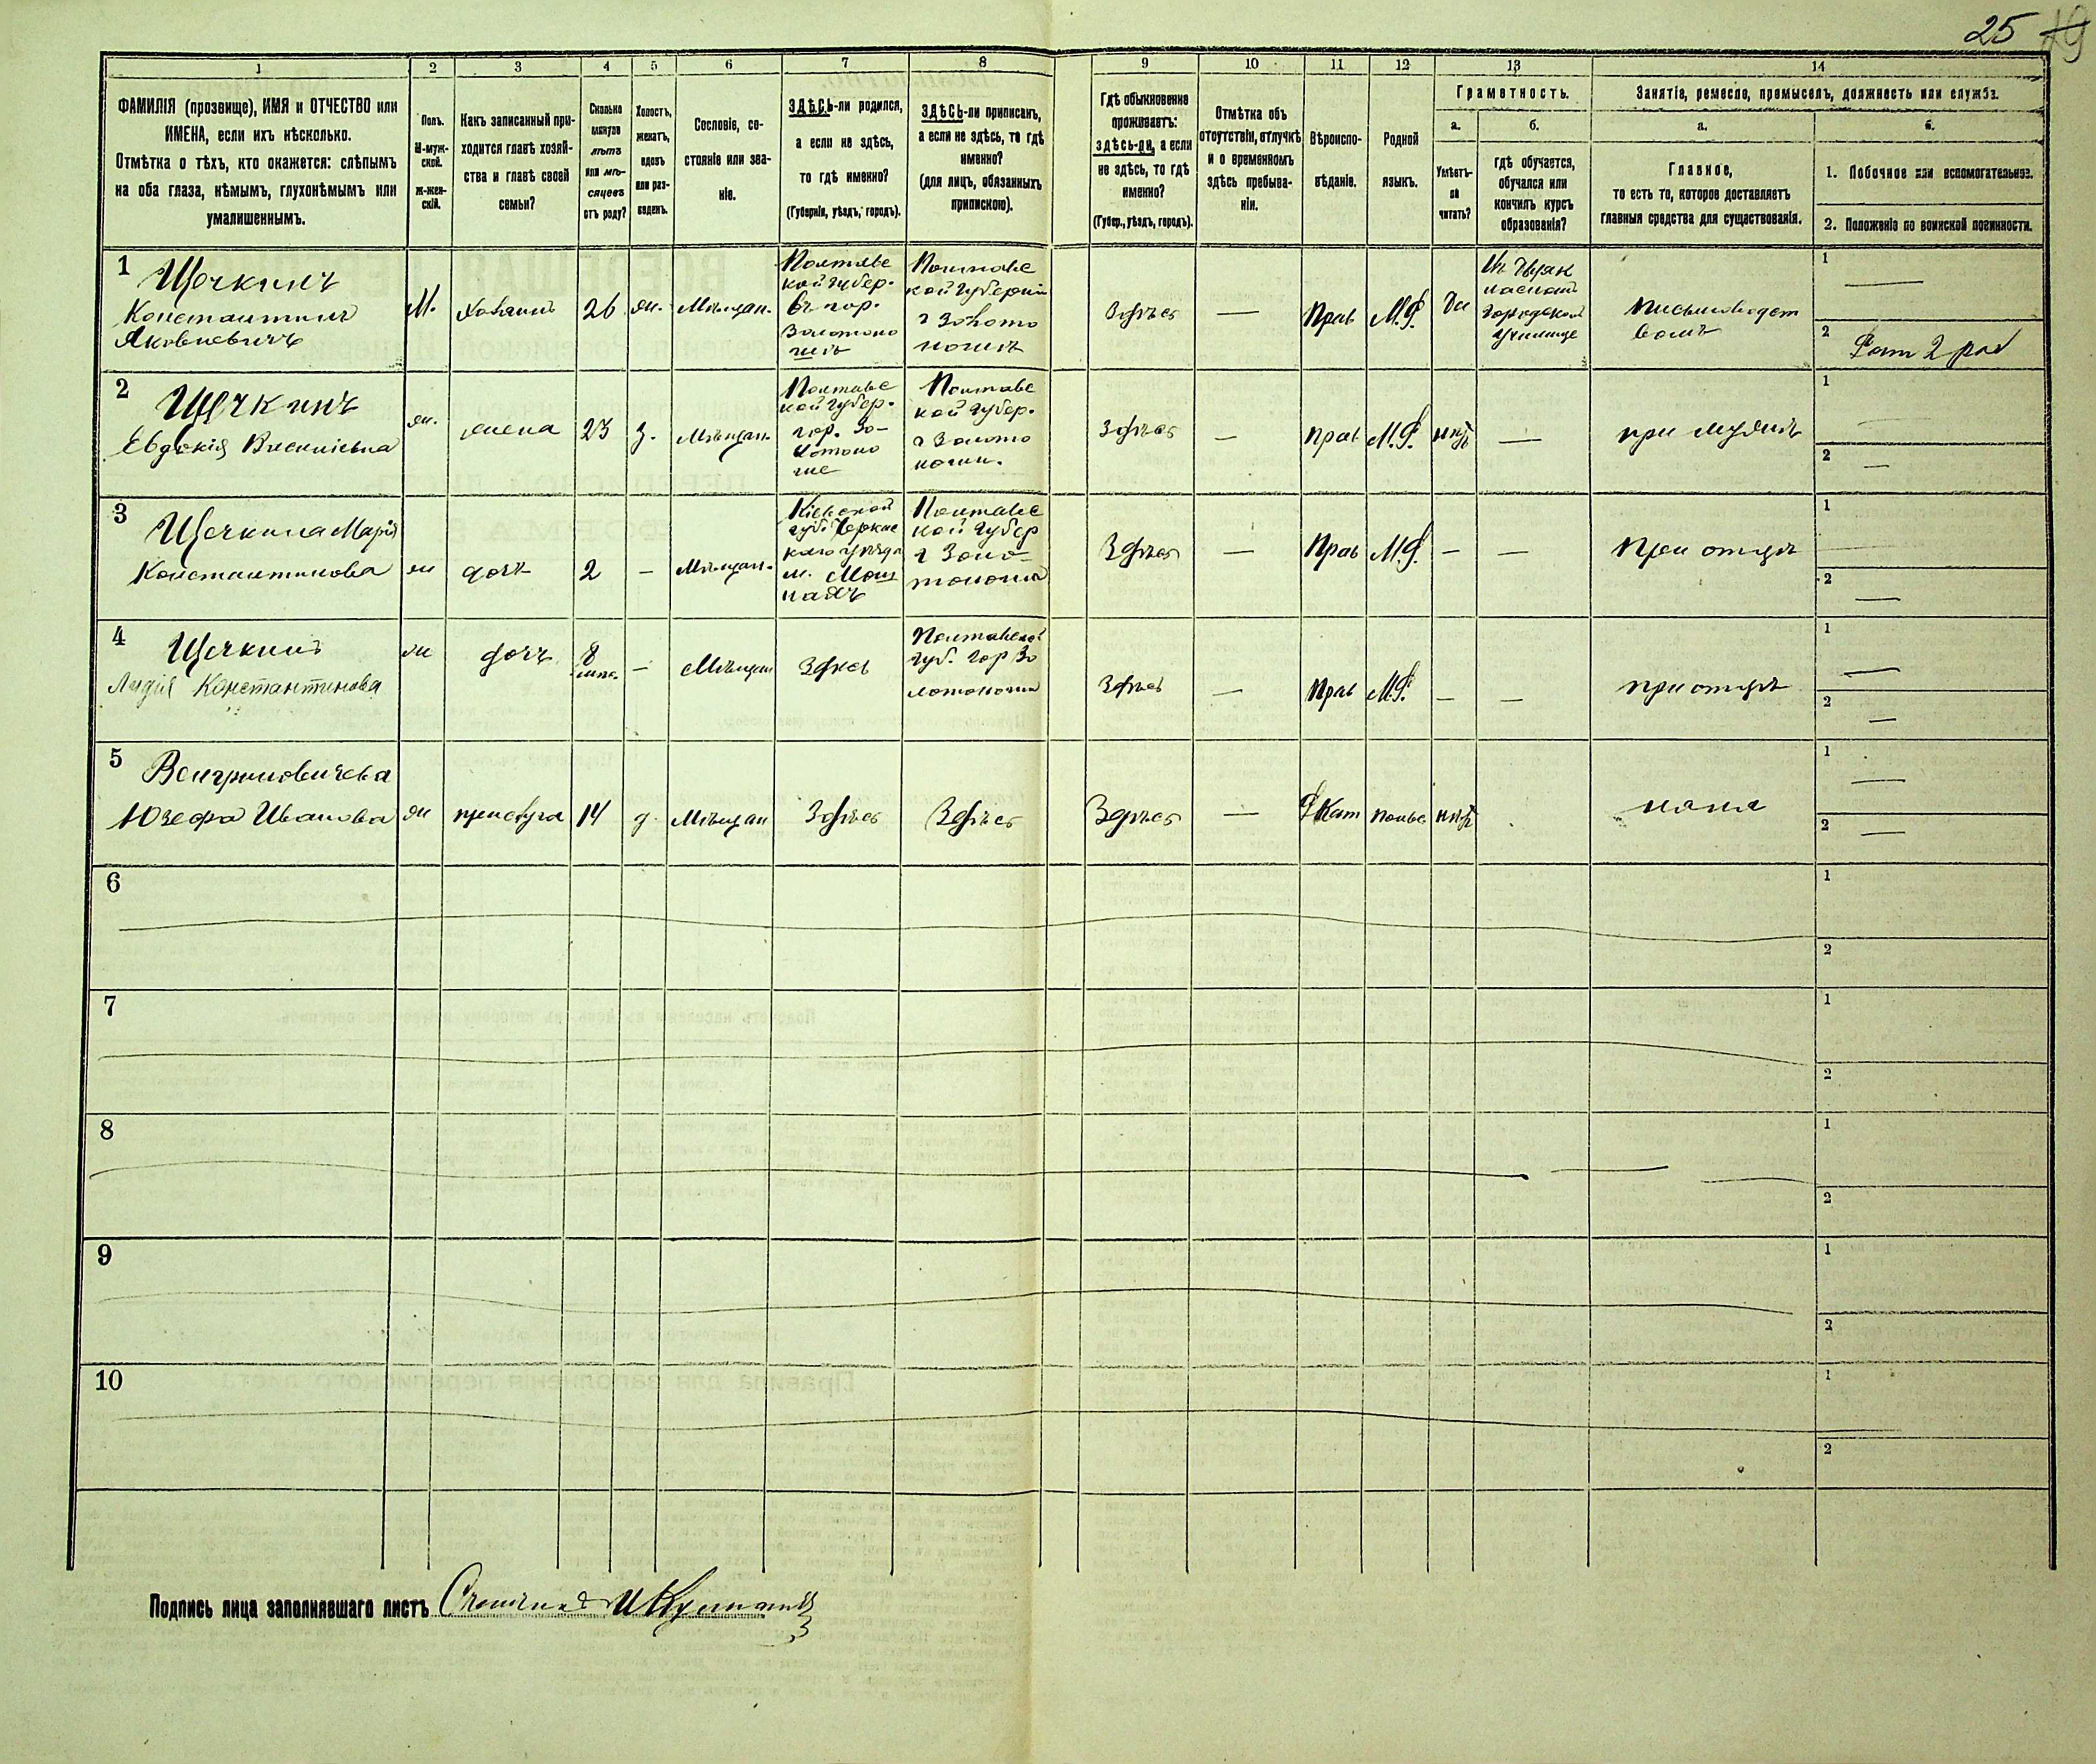 25 19
1 2 3 4 5 6 7 8 9 10 11 12 13 14
ФАМИЛІЯ (прозвище), ИМЯ и ОТЧЕСТВО или
ИМЕНА, если ихъ нѣсколько.
Отмѣтка о тѣхъ, кто окажется: слѣпымъ
на оба глаза, нѣмымъ, глухонѣмымъ или
умалишеннымъ.
Полъ.
М-муж-
ской.
Ж-жен-
скій.
Какъ записанный при-
ходится главѣ хозяй-
ства и главѣ своей
семьи?
Сколько
минуло
лѣтъ
или мѣ-
сяцевъ
отъ роду?
Холостъ,
женатъ,
вдовъ
или раз-
веденъ.
Сословіе, со-
стояніе или зва-
ніе.
ЗДѢСЬ-ли родился,
а если не здѣсь,
то гдѣ именно?
(Губернія, уѣздъ, городъ).
ЗДѢСЬ-ли приписанъ,
а если не здѣсь, то гдѣ
именно?
(для лицъ, обязанныхъ
припискою).
Гдѣ обыкновенно
проживаетъ:
здѣсь-ли, а если
не здѣсь, то гдѣ
именно?
(Губер., уѣздъ, городъ).
Отмѣтка объ
отсутствіи, отлучкѣ
и о временномъ
здѣсь пребыва-
ніи.
Вѣроиспо-
вѣданіе.
Родной
языкъ.
Грамотность.
а.
Умѣетъ-
ли
читать?
б.
гдѣ обучается,
обучался или
кончилъ курсъ
образованія?
Занятіе, ремесло, промыселъ, должность или служба.
а.
Главное,
то есть то, которое доставляетъ
главныя средства для существованія.
б.
1. Побочное или вспомогательное.
2. Положеніе по воинской повинности.
1
Щечкинъ
Константинъ
Яковлевичъ
М.
хозяинъ
26
ж.
Мѣщан.
Полтавс
кой губер.
въ гор.
Золотоно
шѣ
Полтавс
кой Губерніи
г Золото
ноша
Здѣсь
—
Прав
М.Р.
Да
Городском
Училище
письмоводст
вомъ
1 —
2 Рат 2 раз
2
Щечкинъ
Евдокія
ж.
жена
23
з.
Мѣщан.
Полтавс
кой губер.
гор. Зо-
лотоно
ше
Полтавс
кой губер.
г Золото
ноши.
Здѣсь
—
прав
М.Р.
нѣтъ
—
при мужѣ
1 —
2 —
3
Щечкина Марія
Константинова
ж
дочь
2
—
Мѣщан.
Кіевской
губ. Черкас
каго уѣзда
м. Мош
нахъ
Полтавс
кой Губер
г Золо-
тоноша
Здѣсь
—
Прав
М.Р.
—
—
При отцѣ
1 —
2 —
4
Щечкина
Лидія Константинова
ж
дочь
8
мѣс.
—
Мѣщан
Здѣсь
Полтавской
губ. гор Зо
лотоноша
Здѣсь
—
Прав
М.Р.
—
—
при отцѣ
1 —
2 —
5
Венгриновичева
Юзефа Иванова
ж
прислуга
14
д.
Мѣщан
Здѣсь
Здѣсь
Здѣсь
—
Р Кат
Польс
нѣтъ
няня
1 —
2 —
6
1
2
7
1
2
8
1
2
9
1
2
10
1
2
Подпись лица заполнявшаго листъ Счетчикъ